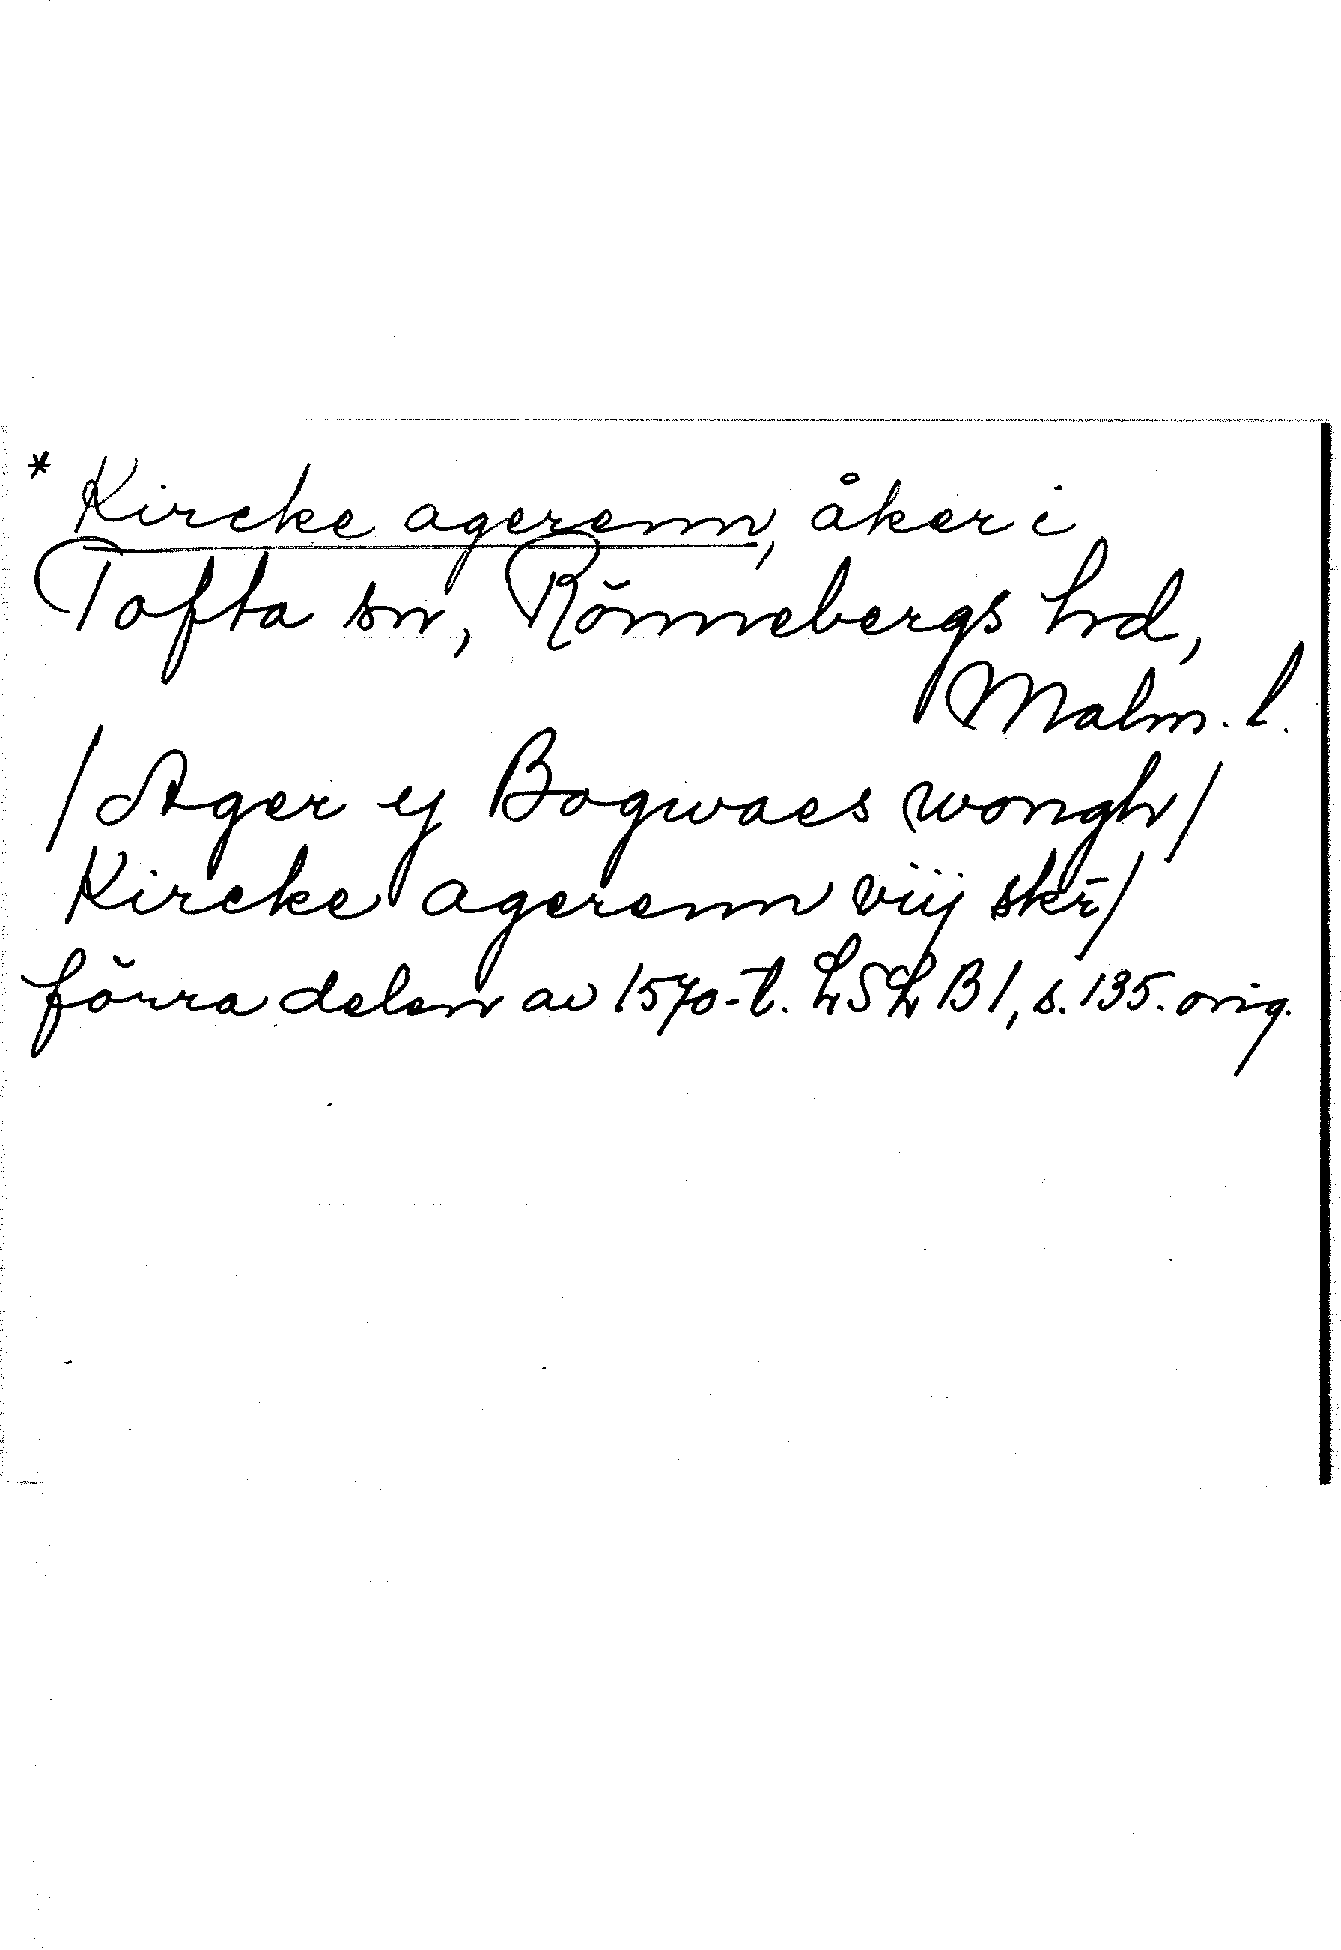 * Kircke agerenn, åker i
Tofta sn, Rönnebergs hd,
Malm. l.
/Ager ij Bogwaes wongh/
Kircke agerenn viij skr̄/
förra delen av 1570-t. LSLB 1, s. 135. orig.